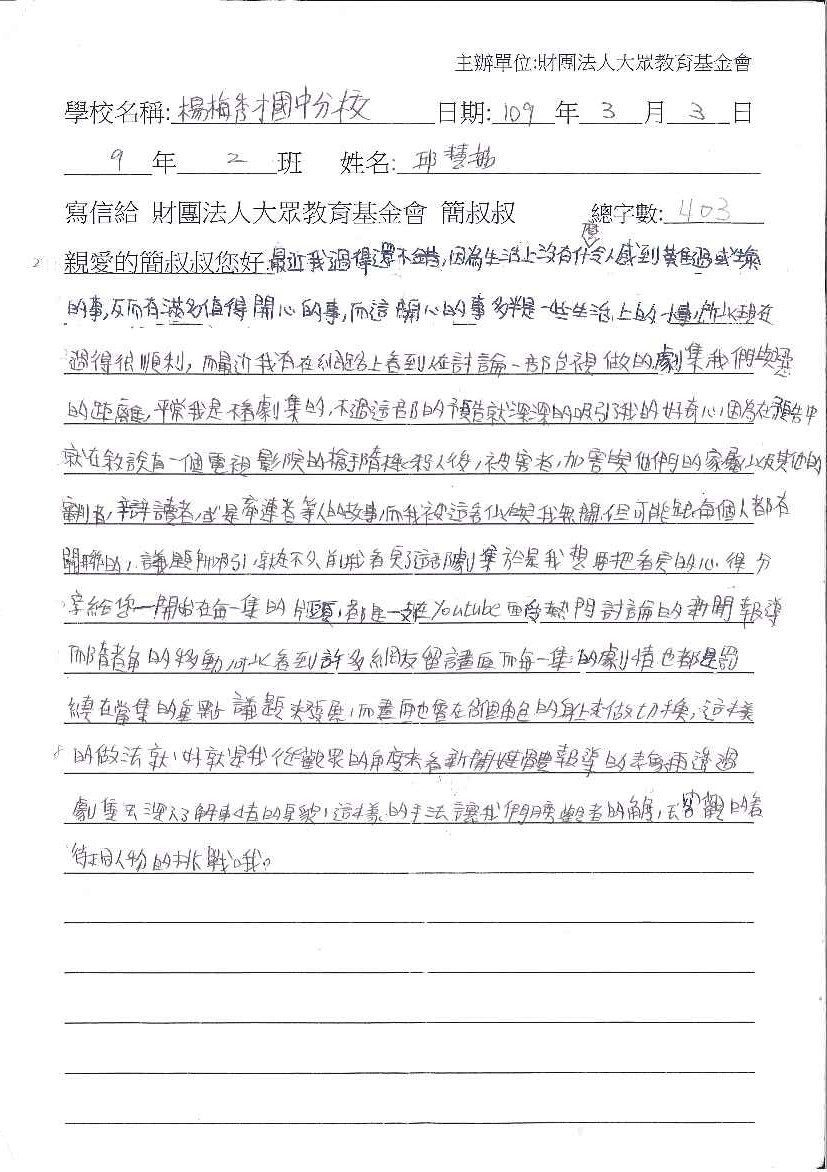 主辦單位:財團法人大眾教育基金會
學校名稱: 楊梅秀才國中分校 日期: 109 年 3 月 3 日
9 年 2 班 姓名: 邱慧敏
寫信給 財團法人大眾教育基金會 簡叔叔 總字數: 403
親愛的簡叔叔您好:最近我過得還不錯,因為生活上沒有什麼令人感到難過或生氣
的事,反而有滿多值得開心的事,而這開心的事多半是一些生活上的小事,所以現在
過得很順利,而最近我有在網路上看到在討論一部台視做的劇集我們與惡
的距離,平常我是不看劇集的,不過這部的預告就深深的吸引了我的好奇心,因為在預告中
就在敘說有一個電視影院的槍手隨機殺人後,被害者,加害與他們的家屬以及其他的
者,辯護者,或是牽連者等人的故事,而我被這看似與我無關,但可能跟每個人都有
關聯的,議題所吸引,就在不久前我看完了這部劇集於是我想要把看完的心得分
享給您一開始在每一集的片頭,都是一堆Youtube 熱門討論的新聞報導
而隨著角的移動,可以看到許多網友留言而每一集的劇情也都是圍
繞在當集的重點議題來發展,而畫面也會在各個角色的身上來做切換,這樣
的做法就,好就是我從觀眾的角度來看新聞媒體報導的表象再透過
劇集去深入了解事情的原貌,這樣的手法讓我們用旁觀者的角度,去客觀的看
待不同人物的挑戰哦。